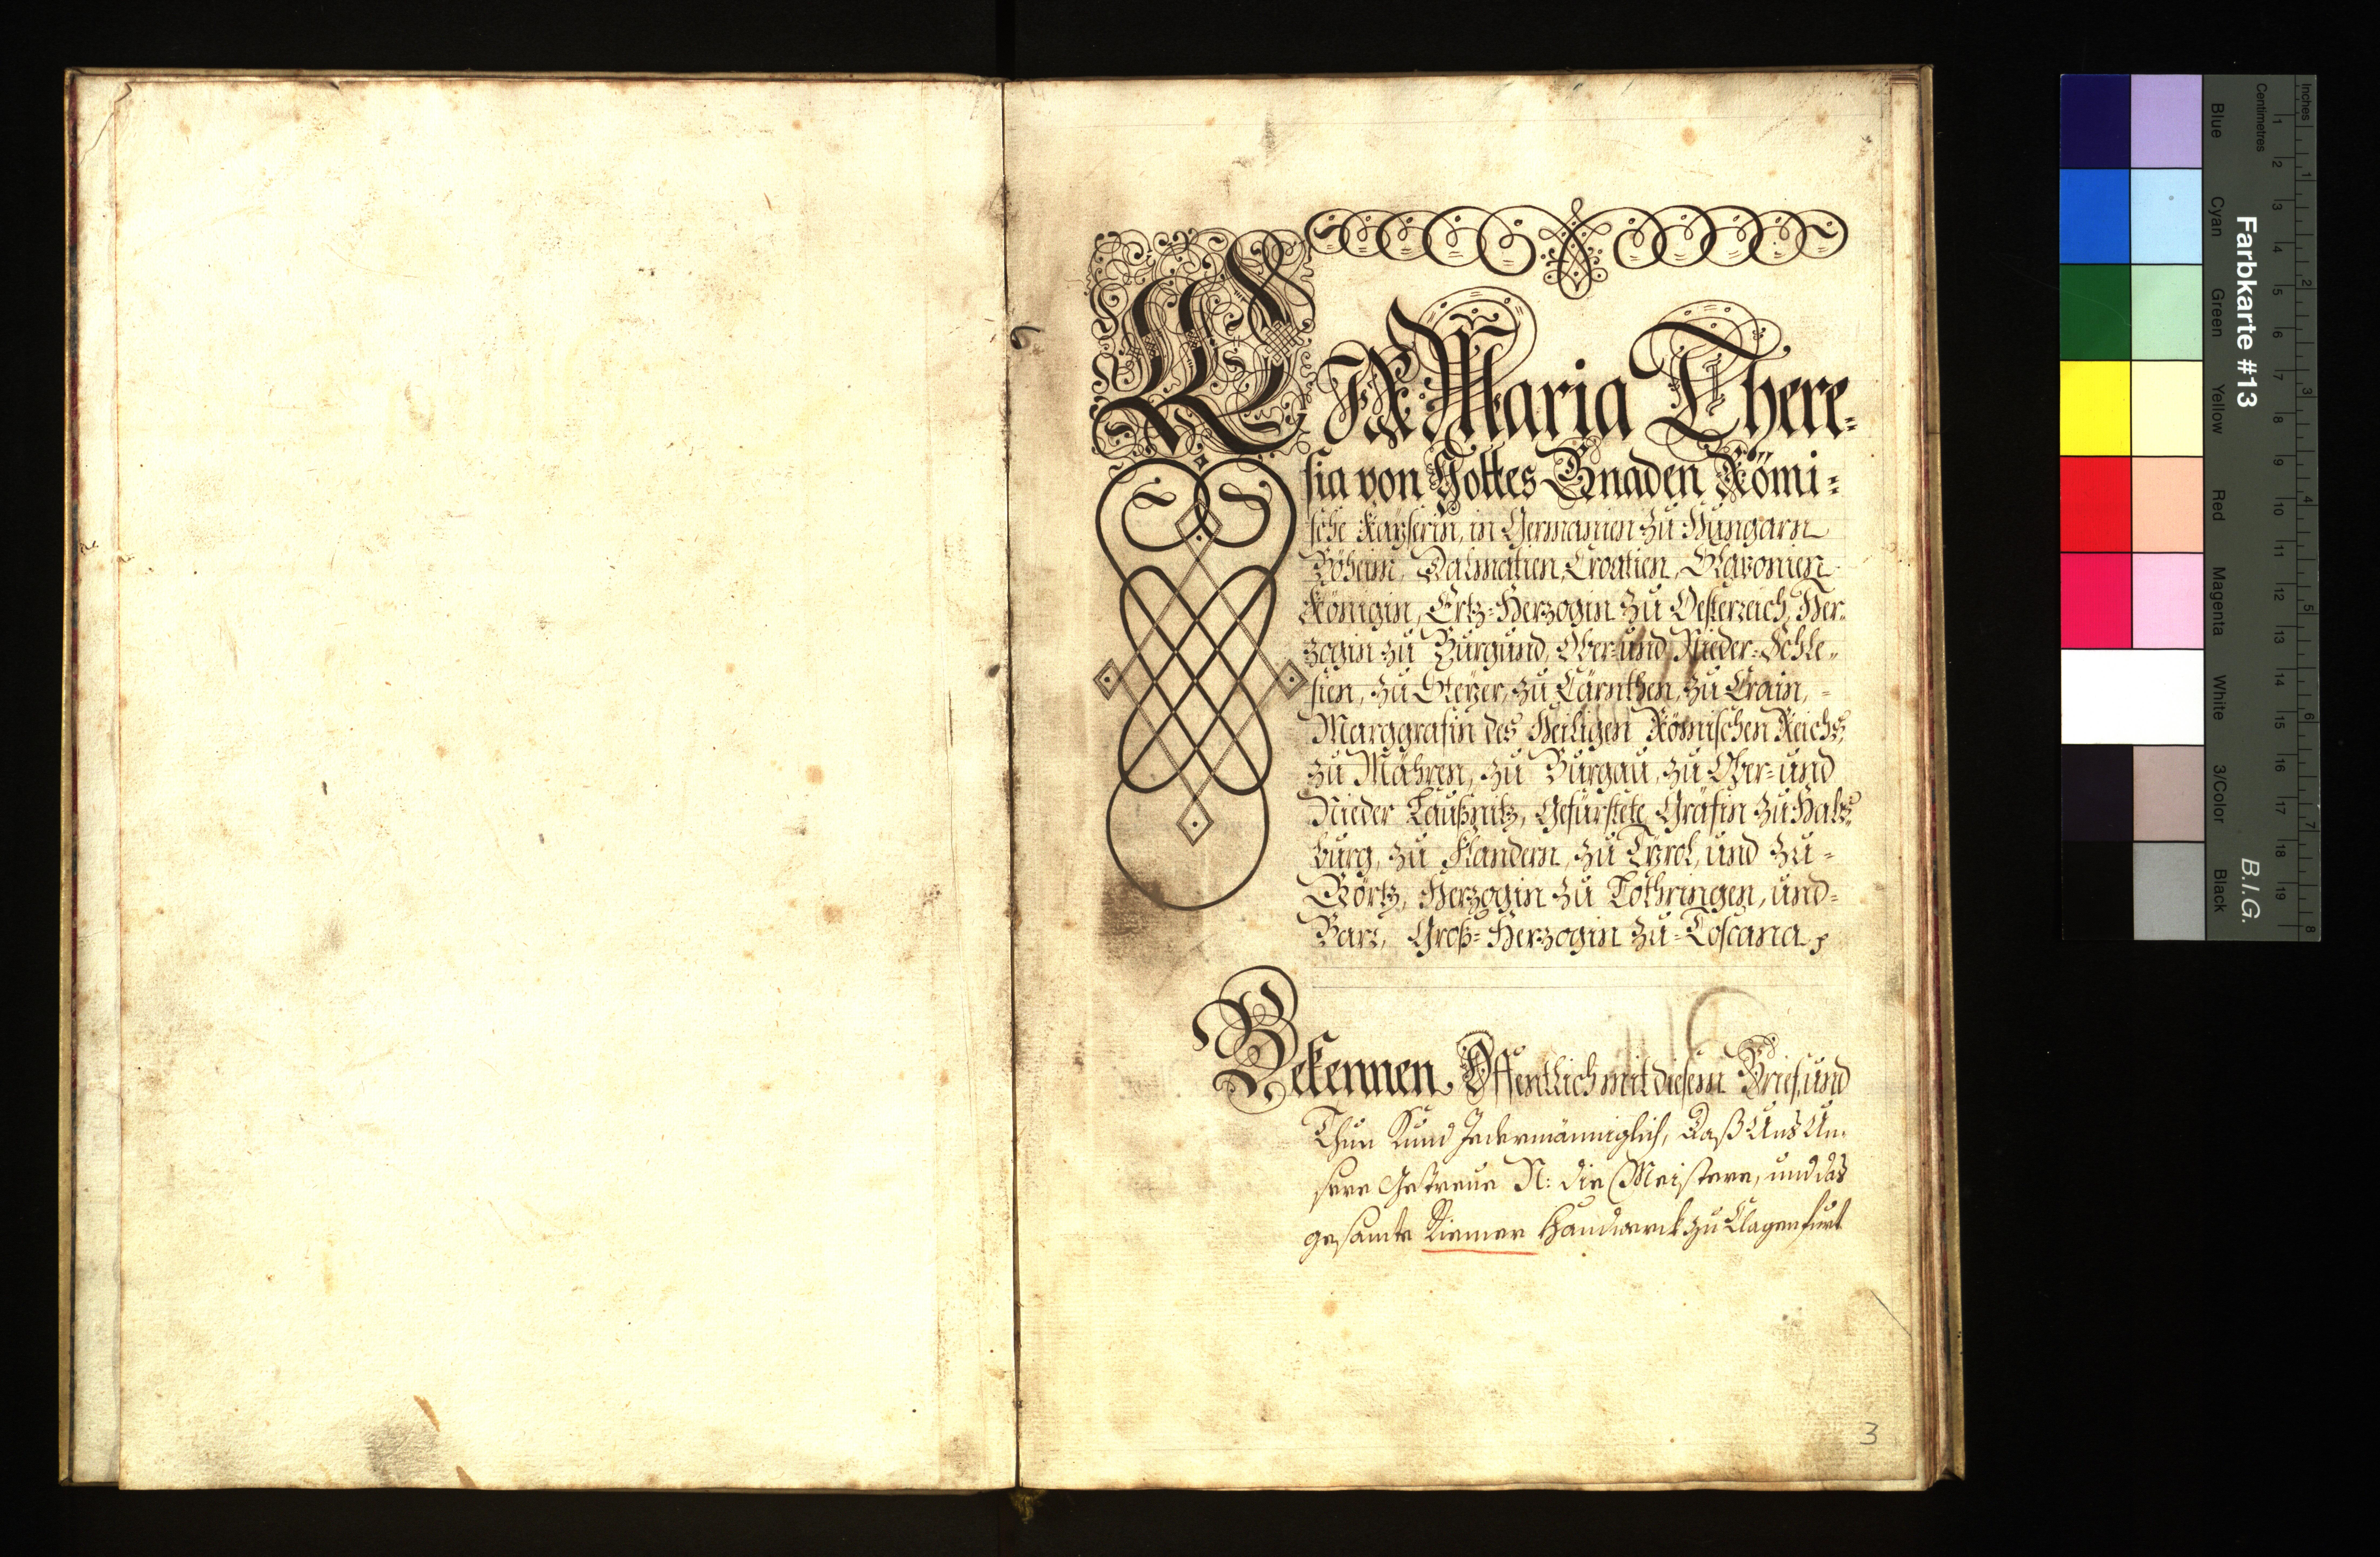 WIR Maria There-
sia von Gottes Gnaden Römi-
sche Kayserin, in Germanien zu Hungarn
Böheim, Dalmatien, Croatien, Slavonien
Königin, Ertz-Herzogin zu Oesterreich, Her-
zogin zu Burgund, Ober- und Nieder-Schle-
sien, zu Steyer, zu Cärnthen, zu Crain,
Marggräfin des Heiligen Römischen Reichs,
zu Mähren, zu Burgau, zu Ober- und
Nieder Laußnitz, Gefürstete Gräfin zu Habs-
burg, zu Flandern, zu Tyrol, und zu-
Görtz, Herzogin zu Lothringen, und-
Barr, Groß-Herzogin zu-Toscana
Bekennen Öffentlich mit diesem Brief, und
Thun Kund Jedermänniglich, Daß Uns Un-
sere Getreue N: die Meistere, und das
gesamte Riemer Handwerck zu Clagenfurt
3
Farbkarte #13
B.I.G.
Inches
1 2 3 4 5 6 7 8
Centimetres
1 2 3 4 5 6 7 8 9 10 11 12 13 14 15 16 17 18 19
Blue
Cyan
Green
Yellow
Red
Magenta
White
3/Color
Black